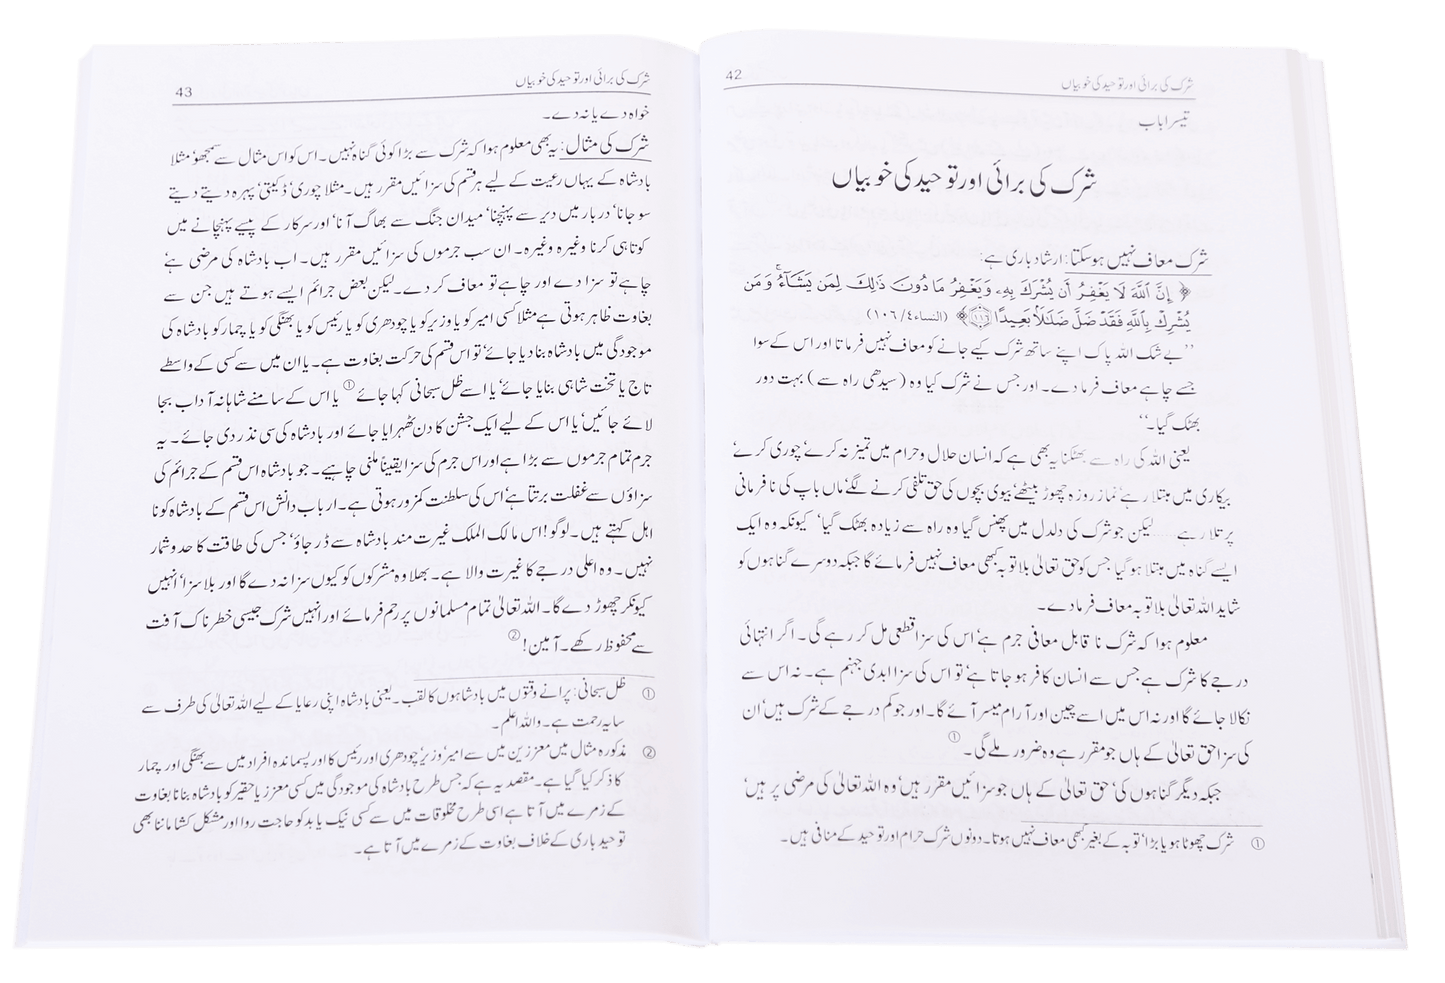 42
شرک کی برائی اور توحید کی خوبیاں
تیسرا باب
شرک کی برائی اور توحید کی خوبیاں
شرک معاف نہیں ہوسکتا: ارشاد باری ہے:
﴿ إِنَّ ٱللَّهَ لَا يَغْفِرُ أَن يُشْرَكَ بِهِۦ وَيَغْفِرُ مَا دُونَ ذَٰلِكَ لِمَن يَشَآءُ ۚ وَمَن
يُشْرِكْ بِٱللَّهِ فَقَدْ ضَلَّ ضَلَـٰلًۢا بَعِيدًا ١١٦﴾ (النساء٤/ ١٠٦)
’’بے شک اللہ پاک اپنے ساتھ شرک کیے جانے کو معاف نہیں فرماتا اور اس کے سوا
جسے چاہے معاف فرما دے۔ اور جس نے شرک کیا وہ (سیدھی راہ سے) بہت دور
بھٹک گیا۔‘‘
یعنی اللہ کی راہ سے بھٹکنا یہ بھی ہے کہ انسان حلال وحرام میں تمیز نہ کرے‘ چوری کرے‘
بیکاری میں مبتلا رہے‘ نماز روزہ چھوڑ بیٹھے‘ بیوی بچوں کی حق تلفی کرنے لگے‘ ماں باپ کی نافرمانی
پر تلا رہے...... لیکن جو شرک کی دلدل میں پھنس گیا وہ راہ سے زیادہ بھٹک گیا‘ کیونکہ وہ ایک
ایسے گناہ میں مبتلا ہوگیا جس کو حق تعالیٰ بلا توبہ کبھی معاف نہیں فرمائے گا جبکہ دوسرے گناہوں کو
شاید اللہ تعالیٰ بلا توبہ معاف فرما دے۔
معلوم ہوا کہ شرک نا قابل معافی جرم ہے‘ اس کی سزا قطعی مل کر رہے گی۔ اگر انتہائی
درجے کا شرک ہے جس سے انسان کافر ہو جاتا ہے‘ تو اس کی سزا ابدی جہنم ہے۔ نہ اس سے
نکالا جائے گا اور نہ اس میں اسے چین اور آرام میسر آئے گا۔ اور جو کم درجے کے شرک ہیں‘ ان
کی سزا حق تعالیٰ کے ہاں جو مقرر ہے وہ ضرور ملے گی۔ ①
جبکہ دیگر گناہوں کی‘ حق تعالیٰ کے ہاں جو سزائیں مقرر ہیں‘ وہ اللہ تعالیٰ کی مرضی پر ہیں‘
① شرک چھوٹا ہو یا بڑا‘ توبہ کے بغیر کبھی معاف نہیں ہوتا۔ دونوں شرک حرام اور توحید کے منافی ہیں۔
43
شرک کی برائی اور توحید کی خوبیاں
خواہ دے یا نہ دے۔
شرک کی مثال: یہ بھی معلوم ہوا کہ شرک سے بڑا کوئی گناہ نہیں۔ اس کو اس مثال سے سمجھو‘ مثلا
بادشاہ کے یہاں رعیت کے لیے ہر قسم کی سزائیں مقرر ہیں۔ مثلا چوری‘ ڈکیتی‘ پہرہ دیتے دیتے
سو جانا‘ دربار میں دیر سے پہنچنا‘ میدان جنگ سے بھاگ آنا‘ اور سرکار کے پیسے پہنچانے میں
کوتاہی کرنا وغیرہ وغیرہ۔ ان سب جرموں کی سزائیں مقرر ہیں۔ اب بادشاہ کی مرضی ہے‘
چاہے تو سزا دے اور چاہے تو معاف کر دے۔ لیکن بعض جرائم ایسے ہوتے ہیں جن سے
بغاوت ظاہر ہوتی ہے مثلا کسی امیر کو یا وزیر کو یا چودھری کو یا رئیس کو یا بھنگی کو یا چمار کو بادشاہ کی
موجودگی میں بادشاہ بنا دیا جائے‘ تو اس قسم کی حرکت بغاوت ہے۔ یا ان میں سے کسی کے واسطے
تاج یا تخت شاہی بنایا جائے‘ یا اسے ظل سبحانی کہا جائے ① یا اس کے سامنے شاہانہ آداب بجا
لائے جائیں‘ یا اس کے لیے ایک جشن کا دن ٹھہرایا جائے اور بادشاہ کی سی نذر دی جائے۔ یہ
جرم تمام جرموں سے بڑا ہے اور اس جرم کی سزا یقیناً ملنی چاہیے۔ جو بادشاہ اس قسم کے جرائم کی
سزاؤں سے غفلت برتتا ہے‘ اس کی سلطنت کمزور ہوتی ہے۔ ارباب دانش اس قسم کے بادشاہ کو نا
اہل کہتے ہیں۔ لوگو! اس مالک الملک غیرت مند بادشاہ سے ڈر جاؤ‘ جس کی طاقت کا حد و شمار
نہیں۔ وہ اعلی درجے کا غیرت والا ہے۔ بھلا وہ مشرکوں کو کیوں سزا نہ دے گا اور بلا سزا‘ انہیں
کیونکر چھوڑ دے گا۔ اللہ تعالیٰ تمام مسلمانوں پر رحم فرمائے اور انہیں شرک جیسی خطرناک آفت
سے محفوظ رکھے۔ آمین! ②
① ظل سبحانی: پرانے وقتوں میں بادشاہوں کا لقب۔ یعنی بادشاہ اپنی رعایا کے لیے اللہ تعالیٰ کی طرف سے
سایہ رحمت ہے۔ واللہ اعلم۔
② مذکورہ مثال میں معززین میں سے امیر‘ وزیر‘ چودھری اور رئیس کا اور پسماندہ افراد میں سے بھنگی اور چمار
کا ذکر کیا گیا ہے۔ مقصد یہ ہے کہ جس طرح بادشاہ کی موجودگی میں کسی معزز یا حقیر کو بادشاہ بنانا بغاوت
کے زمرے میں آتا ہے اسی طرح مخلوقات میں سے کسی نیک یا بد کو حاجت روا اور مشکل کشا ماننا بھی
توحید باری کے خلاف بغاوت کے زمرے میں آتا ہے۔